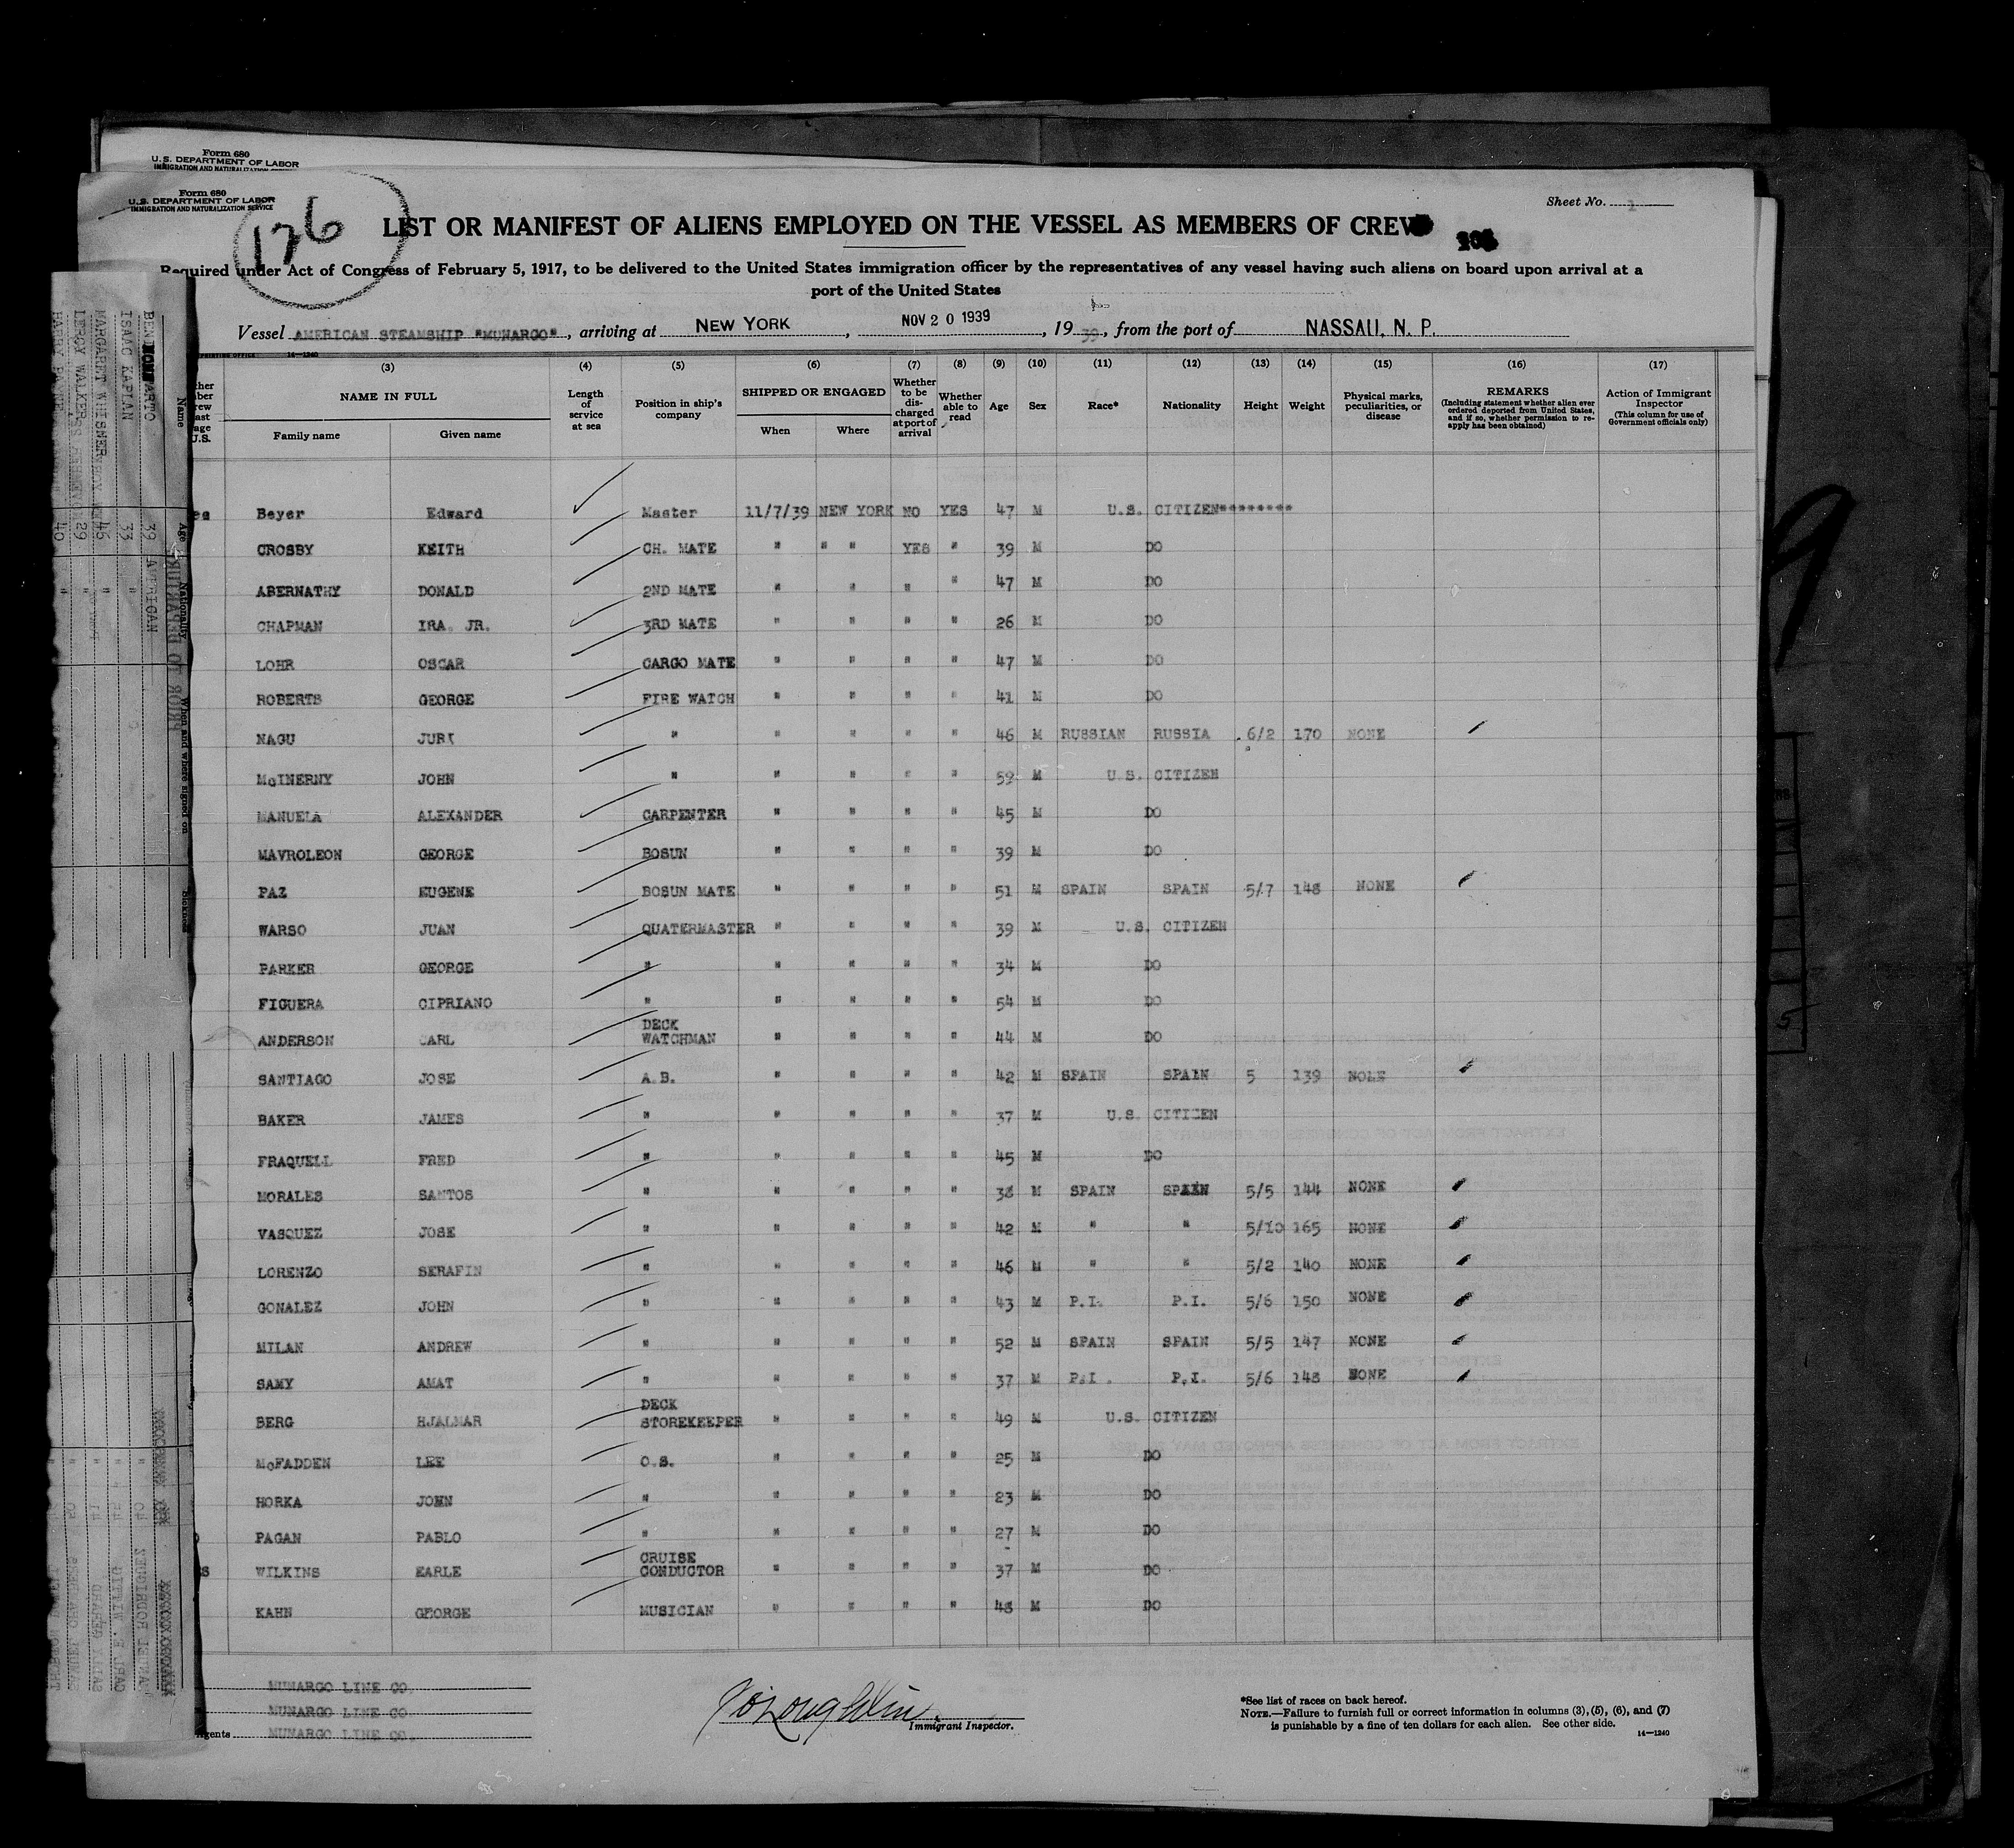 Form 680
U.S. DEPARTMENT OF LABOR
IMMIGRATION AND NATURALIZATION
Form 680
U.S. DEPARTMENT OF LABOR
IMMIGRATION AND NATURALIZATION SERVICE
176
Sheet No. 1
LIST OR MANIFEST OF ALIENS EMPLOYED ON THE VESSEL AS MEMBERS OF CREW
Required under Act of Congress of February 5, 1917, to be delivered to the United States immigration officer by the representatives of any vessel having such aliens on board upon arrival at a
port of the United States
Vessel AMERICAN STEAMSHIP "MUNARGO", arriving at NEW YORK, NOV 20 1939, 1939, from the port of NASSAU, N. P.
PRINTING OFFICE 14—1240
(3) (4) (5) (6) (7) (8) (9) (10) (11) (12) (13) (14) (15) (16) (17)
NAME IN FULL Length of service at sea Position in ship's company SHIPPED OR ENGAGED Whether to be discharged at port of arrival Whether able to read Age Sex Race* Nationality Height Weight Physical marks, peculiarities, or disease REMARKS (Including statement whether alien ever ordered deported from United States, and if so, whether permission to reapply has been obtained) Action of Immigrant Inspector (This column for use of Government officials only)
Family name Given name When Where
Beyer Edward Master 11/7/39 NEW YORK NO YES 47 M U.S. CITIZEN********
CROSBY KEITH CH. MATE " " " YES " 39 M DO
ABERNATHY DONALD 2ND MATE " " " " 47 M DO
CHAPMAN IRA. JR. 3RD MATE " " " " 26 M DO
LOHR OSCAR CARGO MATE " " " " 47 M DO
ROBERTS GEORGE FIRE WATCH " " " " 41 M DO
NAGU JURI " " " " " 46 M RUSSIAN RUSSIA 6/2 170 NONE
McINERNY JOHN " " " " " 59 M U.S. CITIZEN
MANUELA ALEXANDER CARPENTER " " " " 45 M DO
MAVROLEON GEORGE BOSUN " " " " 39 M DO
PAZ EUGENE BOSUN MATE " " " " 51 M SPAIN SPAIN 5/7 148 NONE
WARSO JUAN QUATERMASTER " " " " 39 M U.S. CITIZEN
PARKER GEORGE " " " " " 34 M DO
FIGUERA CIPRIANO " " " " " 54 M DO
ANDERSON CARL DECK WATCHMAN " " " " 44 M DO
SANTIAGO JOSE A.B. " " " " 42 M SPAIN SPAIN 5 139 NONE
BAKER JAMES " " " " " 37 M U.S. CITIZEN
FRAQUELL FRED " " " " " 45 M DO
MORALES SANTOS " " " " " 38 M SPAIN SPAIN 5/5 144 NONE
VASQUEZ JOSE " " " " " 42 M " " 5/10 165 NONE
LORENZO SERAFIN " " " " " 46 M " " 5/2 140 NONE
GONALEZ JOHN " " " " " 43 M P.I. P.I. 5/6 150 NONE
MILAN ANDREW " " " " " 52 M SPAIN SPAIN 5/5 147 NONE
SAMY AMAT " " " " " 37 M P.I. P.I. 5/6 148 NONE
BERG HJALMAR DECK STOREKEEPER " " " " 49 M U.S. CITIZEN
McFADDEN LEE O.S. " " " " 25 M DO
HORKA JOHN " " " " " 23 M DO
PAGAN PABLO " " " " " 27 M DO
WILKINS EARLE CRUISE CONDUCTOR " " " " 37 M DO
KAHN GEORGE MUSICIAN " " " " 48 M DO
MUNARGO LINE CO.
MUNARGO LINE CO
Agents MUNARGO LINE CO.
Immigrant Inspector.
*See list of races on back hereof.
NOTE.—Failure to furnish full or correct information in columns (3), (5), (6), and (7)
is punishable by a fine of ten dollars for each alien. See other side.
14—1240
Name Age Nationality When and where signed on Sickness
PRIOR TO DEPARTURE
39 AMERICAN
ISAAC KAPLAN 33 "